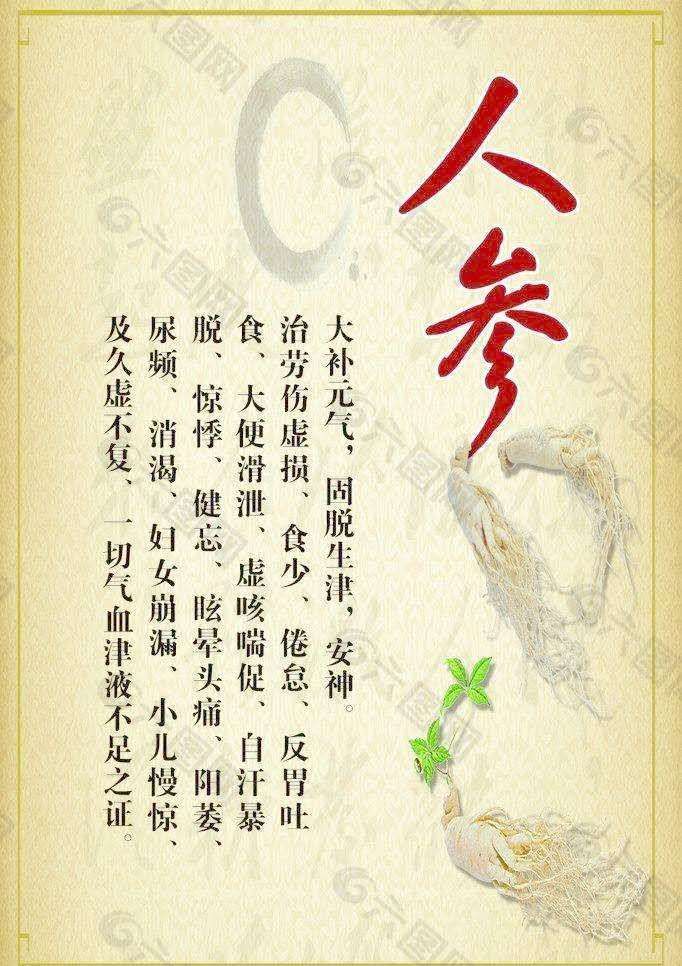 人参
大补元气，固脱生津，安神。
治劳伤虚损、食少、倦怠、反胃吐
食、大便滑泄、虚咳喘促、自汗暴
脱、惊悸、健忘、眩晕头痛、阳萎、
尿频、消渴、妇女崩漏、小儿慢惊、
及久虚不复、一切气血津液不足之证。
六图网